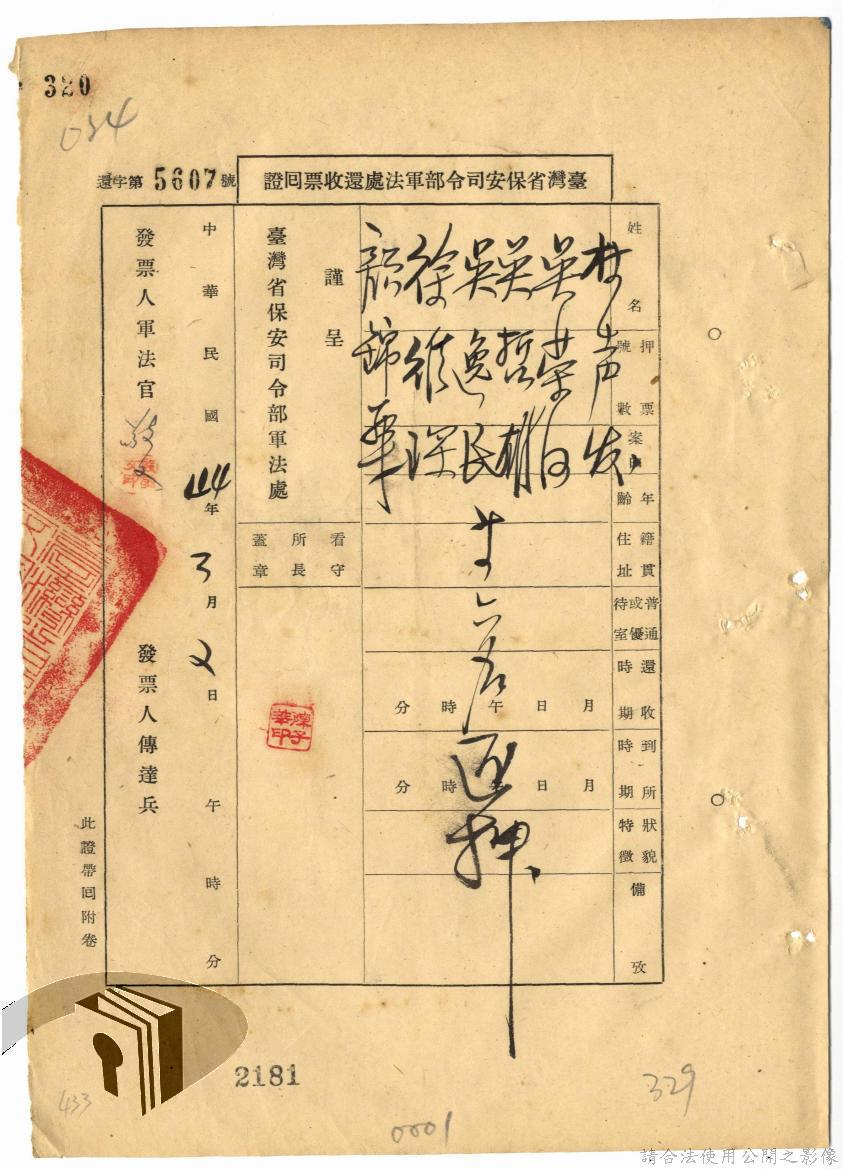 320
034
臺灣省保安司令部軍法處還收票回證
還字第5607號
姓名
押票號數
案
年齡
籍貫住址
普通或優待室
還收時期
到所時期
狀貌特徵
備攷
吳榮
吳哲
吳逸民
徐維琛
顏錦華
六名
還押
月 日 午 時 分
月 日 午 時 分
謹呈
臺灣省保安司令部軍法處
看守所長蓋章
中華民國44年3月2日 午 時 分
發票人軍法官
發票人傳達兵
此證帶回附卷
2181
433
0001
329
請合法使用公開之影像